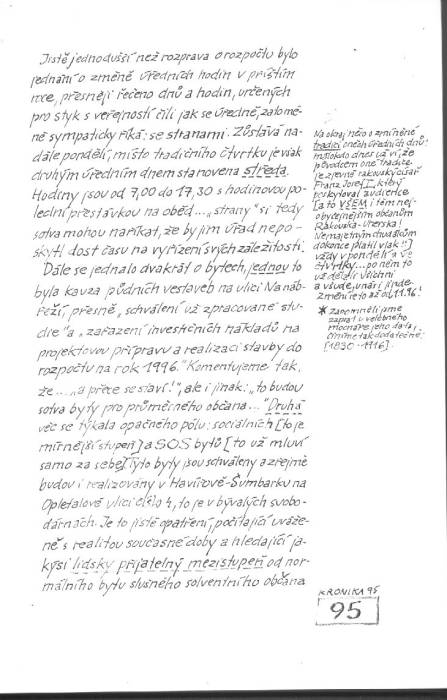 Jistě jednodušší než rozprava o rozpočtu bylo
jednání o změně úředních hodin v příštím
roce, přesněji řečeno dnů a hodin, určených
pro styk s veřejností čili jak se úředně, zatome-
ně sympaticky říká: se stranami. Zůstává na-
dále pondělí, místo tradičního čtvrtku je však
druhým úředním dnem stanovena středa.
Hodiny jsou od 7,00 do 17,30 s hodinovou po-
lední přestávkou na oběd... „strany" si tedy
sotva mohou naříkat, že by jim úřad nepo-
skytl dost času na vyřízení svých záležitostí.
Dále se jednalo dvakrát o bytech, jednou to
byla kauza půdních vestaveb na ulici Na náb-
řeží, přesně „schválení už zpracované stu-
die" a „zařazení investičních nákladů na
projektovou přípravu a realizaci stavby do
rozpočtu na rok 1996." Komentujeme tak,
že... „a přece se staví!", ale i jinak: „to budou
sotva byty pro průměrného občana..." Druhá
věc se týkala opačného pólu: sociálních [to je
mírnější stupeň] a SOS bytů [to už mluví
samo za sebe]. Tyto byty jsou schváleny a zřejmě
budou i realizovány v Havířově-Šumbarku na
Opletalově ulici číslo 4, to je v bývalých svobo-
dárnách. Je to jistě opatření, počítající uváže-
ně s realitou současné doby a hledající ja-
kýsi lidsky přijatelný mezistupeň od nor-
málního bytu slušného solventního občana
Na okraj něco o zmíněné
tradici oněch úředních dnů:
málokdo dnes už ví, že
původcem oné tradice
je zjevně rakouský císař
Franz Josef I.*, který
poskytoval audience
[a to VŠEM i těm nej-
obyčejnějším občanům
Rakouska-Uherska!
Nemajetným chudákům
dokonce platil vlak!!]
vždy v pondělí a ve
čtvrtky... po něm to
už dělali všichni
a všude, u nás i jinde.
Změní se to až od 1.1.96!
* zapomněli jsme
zapsat u velebného
mocnáře jeho data,
činíme tak dodatečně:
[1830-1916].
KRONIKA 95
95